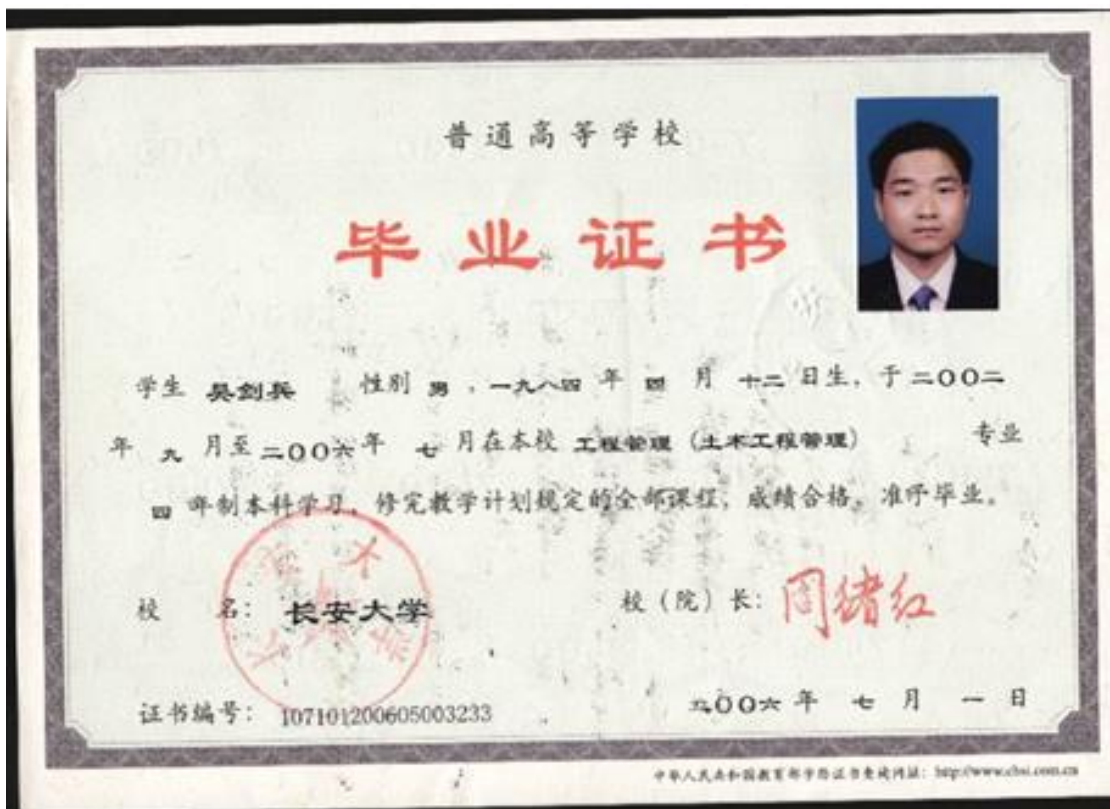 普通高等学校
毕业证书
学生 吴剑兵 性别 男，一九八四 年 四 月 十二 日生，于 二〇〇二
年 九 月至 二〇〇六 年 七 月在本校 工程管理（土木工程管理） 专业
四 年制本科学习，修完教学计划规定的全部课程，成绩合格，准予毕业。
校 名：长安大学
校（院）长：周绪红
证书编号：107101200605003233
二〇〇六 年 七 月 一 日
中华人民共和国教育部学历证书查询网址：http://www.chsi.com.cn